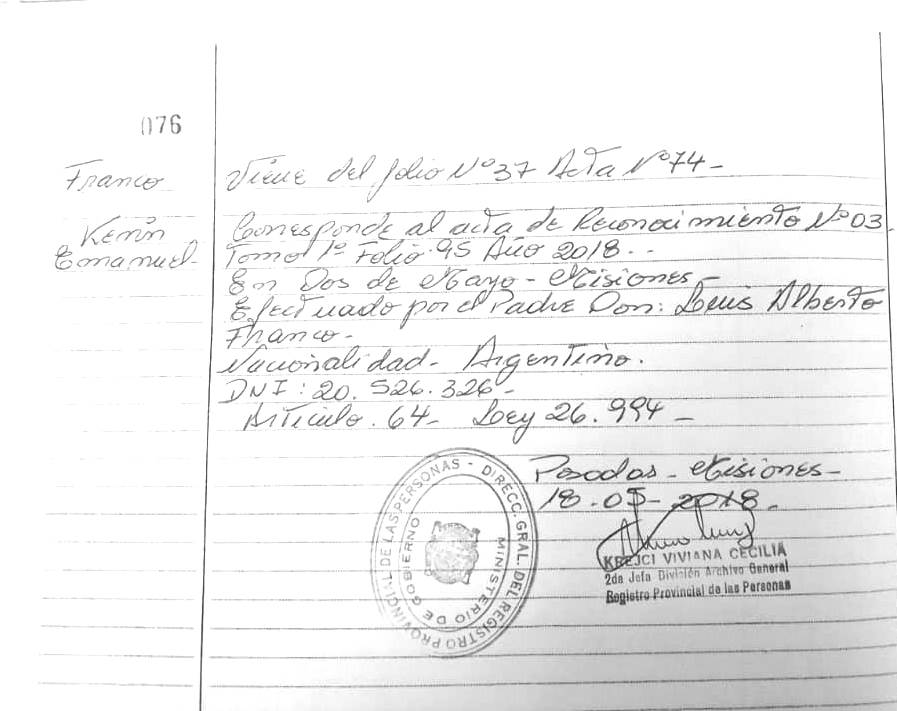 076
Franco
Kevin
Emanuel-
Viene del folio Nº37 Acta Nº74-
Corresponde al acta de Reconocimiento Nº03
Tomo 1º Folio 95 Año 2018.-
En Dos de Mayo - Misiones-
Efectuado por el Padre Don: Luis Alberto
Franco-
Nacionalidad- Argentino.
DNI: 20.526.326-
Articulo. 64- Ley 26.994-
Posadas - Misiones-
18-05-2018-
KREJCI VIVIANA CECILIA
2da Jefa División Archivo General
Registro Provincial de las Personas
DIRECC. GRAL. DEL REGISTRO PROVINCIAL DE LAS PERSONAS -
MINISTERIO DE GOBIERNO